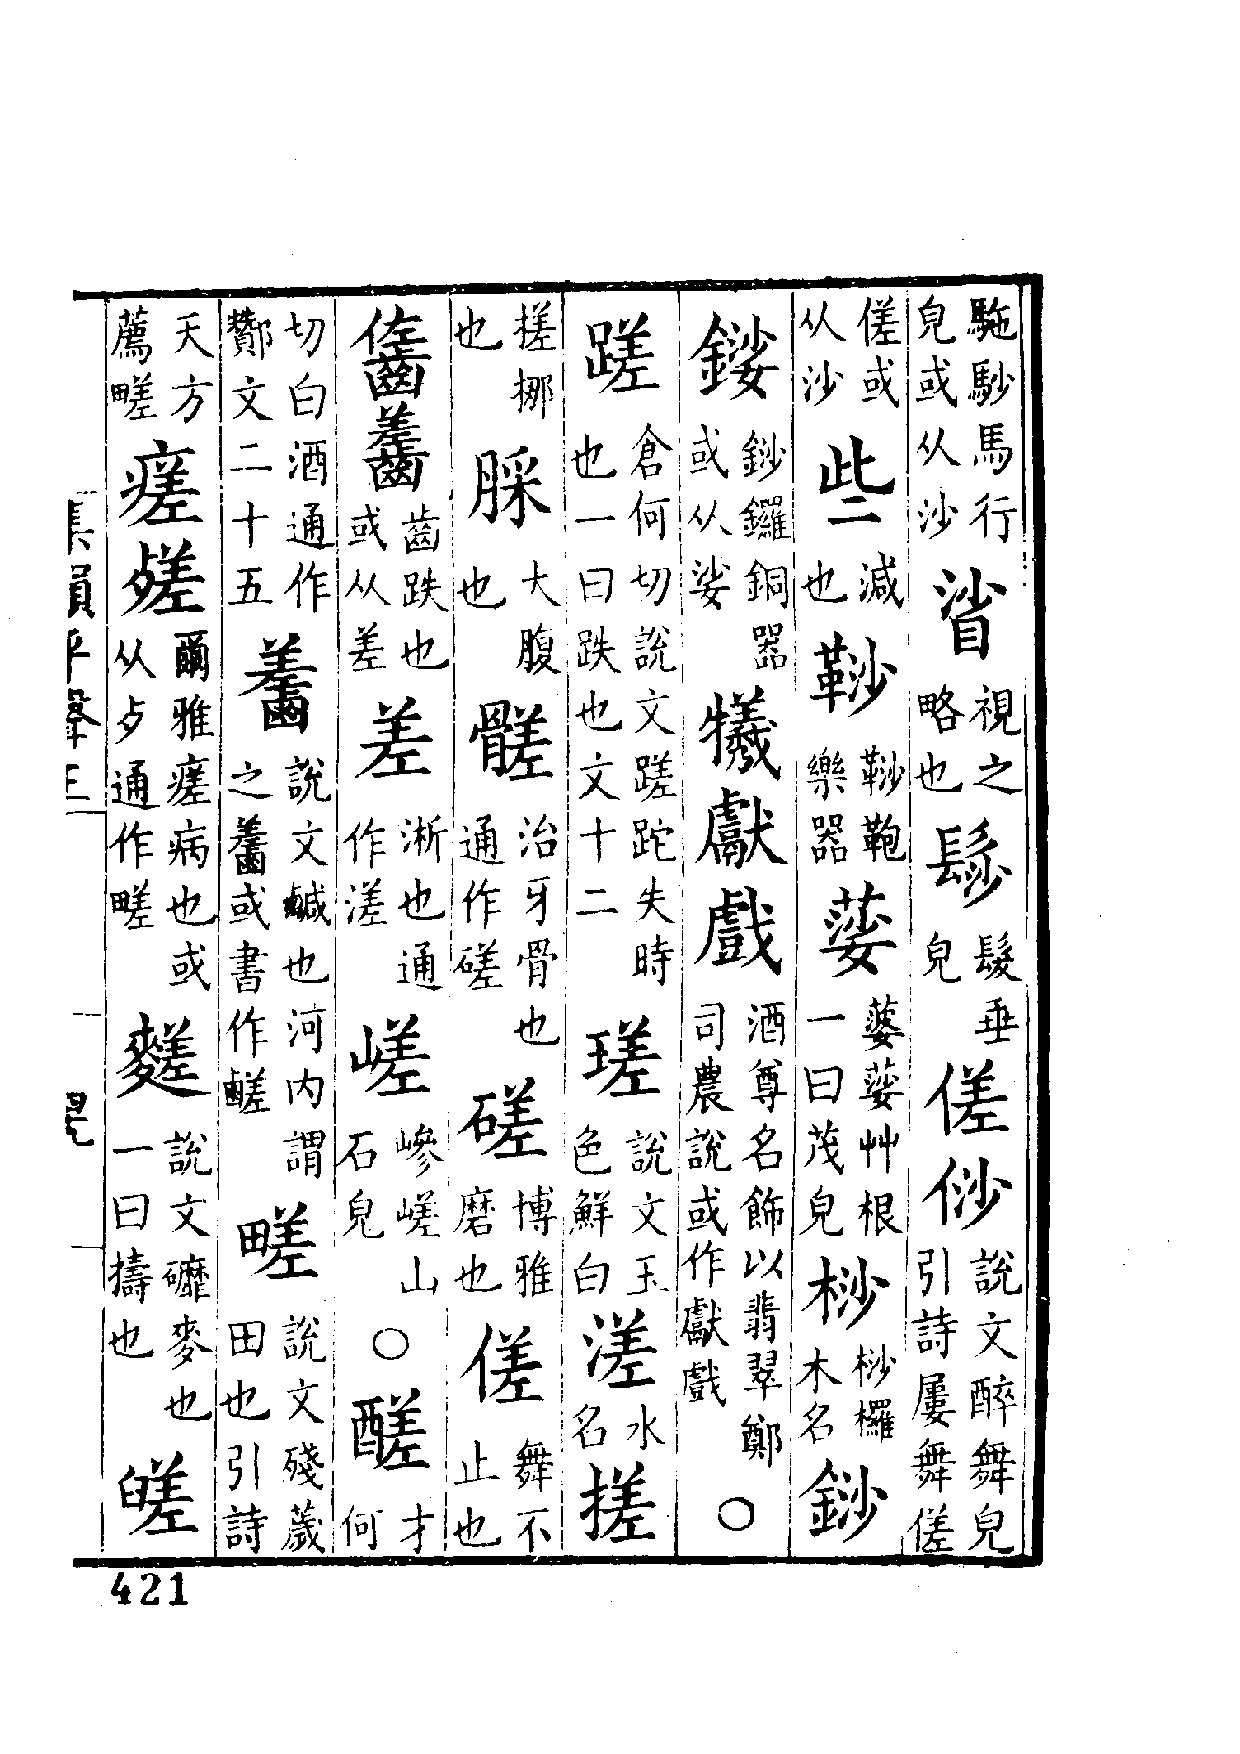 駞馺馬行皃或从沙䈾視之略也髿髮垂皃傞㑣說文醉舞皃引詩屢舞傞
傞或从沙些減也鞑鞑鞄樂器蔢蔢蔢艸根一曰茂皃桫桫欏木名鈔
鎫鈔鑼銅器或从娑犧獻戲酒尊名飾以翡翠鄭司農說或作獻戲○
蹉倉何切說文蹉跎失時也一曰跌也文十二瑳說文玉色鮮白溠水名搓
搓挪也脎大腹也髊治牙骨也通作磋磋博雅磨也傞舞不止也
齹齒跌也或从差差淅也通作溠嵯嵾嵯山石皃○醝才何
切白酒通作酇文二十五說文鹹也河内謂之或書作䴾㽨說文殘薉田也引詩
天方薦㽨瘥㾹爾雅瘥病也或从歹通作㽨䴾說文䃺麥也一曰擣也䑘
集韻平聲三
421